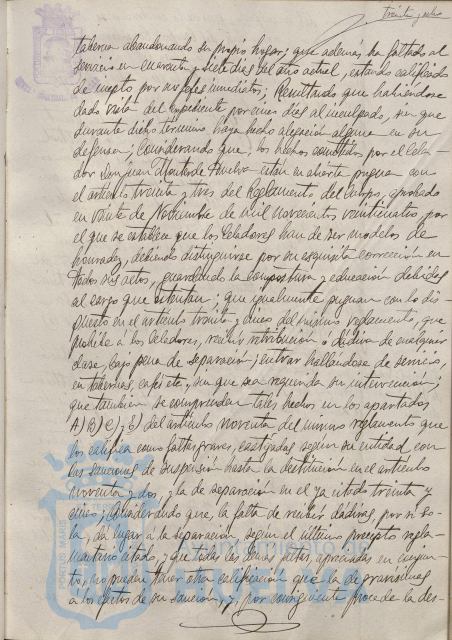 treinta y ocho
taberna abandonando su propio hogar; que además ha faltado al
servicio en cuarenta y siete días del año actual, estando calificado
de inepto por sus jefes inmediatos; Resultando que habiéndose
dado vista del expediente por cinco días al inculpado, sin que
durante dicho término haya hecho alegación alguna en su
defensa; Considerando que, los hechos cometidos por el Cela-
dor Don Juan Montes de Huelva están en abierta pugna con
el artículo treinta y tres del Reglamento del Cuerpo, aprobado
en veinte de Noviembre de mil novecientos veinticuatro, por
el que se establece que los Celadores han de ser modelos de
honradez, debiendo distinguirse por su exquisita corrección en
todos sus actos, guardando la compostura y educación debidas
al cargo que ostentan; que igualmente pugnan con lo dis-
puesto en el artículo treinta y cinco del mismo reglamento, que
prohibe a los Celadores, recibir retribución o dádiva de cualquier
clase, bajo pena de separación; entrar hallándose de servicio,
en tabernas, cafés etc, sin que sea requerida su intervención;
que también se comprenden tales hechos en los apartados
A) B) C) y E) del artículo noventa del mismo reglamento que
los califica como faltas graves, castigadas según su entidad, con
las sanciones de suspensión hasta la destitución en el artículo
noventa y dos, y la de separación en el ya citado treinta y
cinco; Considerando que, la falta de recibir dádivas, por si so-
la, dá lugar a la separación, según el último precepto regla-
mentario citado, y que todas las demás faltas, apreciadas en conjun-
to, no pueden tener otra calificación que la de gravísimas
a los efectos de su sanción, y, por consiguiente procede la des-
PORTUS MARIS
Ayuntamiento de